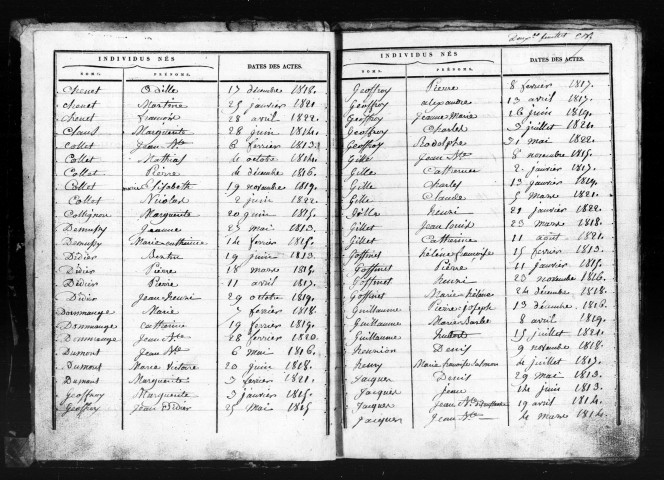 INDIVIDUS NÉS
DATES DES ACTES.
NOMS. PRÉNOMS.
Chenet Odille 17 décembre 1818.
Chenet Martine 25 janvier 1820.
Chenet François 28 avril 1822.
Claus Marguerite 28 juin 1814.
Collet Jean Bte 6 février 1813.
Collet Mathias 4 octobre 1814.
Collet Pierre 4 décembre 1816.
Collet Marie Elisabeth 19 novembre 1819.
Collet Nicolas 2 juin 1822.
Collignon Marguerite 20 juin 1815.
Demussy Jeanne 25 mai 1813.
Demussy Marie catherine 14 février 1815.
Didier 19 juin 1813.
Didier Pierre 18 mars 1815.
Didier Pierre 11 avril 1817.
Didier Jean henri 29 octobre 1819.
Dommange Marie 7 février 1818.
Dommange Catherine 19 février 1819.
Dommange Jean Bte 28 février 1820.
Dumont Jean Bte 6 mai 1816.
Dumont Marie Victoire 20 juin 1818.
Dumont Marguerite 3 février 1821.
Geoffroy Marguerite 3 janvier 1815.
Geoffroy Jean Didier 25 mai 1815
feuillet
INDIVIDUS NÉS
DATES DES ACTES.
NOMS. PRÉNOMS.
Geoffroy Pierre 8 février 1817.
Geoffroy alexandre 13 avril 1817.
Geoffroy Jeanne Marie 16 juin 1819.
Geoffroy Charles 3 juillet 1821.
Geoffroy Rodolphe 31 mai 1822.
Gille Jean Bte 8 novembre 1815.
Gille Catherine 2 janvier 1817.
Gille Charles 13 janvier 1819.
Gille Claude 5 mars 1821.
Gille henri 21 janvier 1822.
Gillet Jean Louis 23 mars 1818.
Gillet Catherine 11 août 1821.
Goffinet hélène françoise 15 février 1813.
Goffinet Pierre 11 janvier 1815.
Goffinet henri 23 novembre 1816.
Goffinet Marie hélène 24 décembre 1818.
Guillaume Pierre Joseph 13 décembre 1816.
Guillaume Marie Barbe 8 avril 1819.
Guillaume 15 juillet 1821.
Denis 9 novembre 1818.
henry Marie françoise 4 juillet 1817.
Jacques Denis 29 mai 1813.
Jacques 14 juin 1813.
Jacques Jean Bte 19 avril 1814.
Jacques Jean Bte 4 mars 1814.